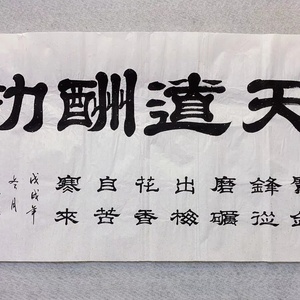 天道酬
鋒從
磨礪
出梅
花香
自苦
寒來
戊戌年
月